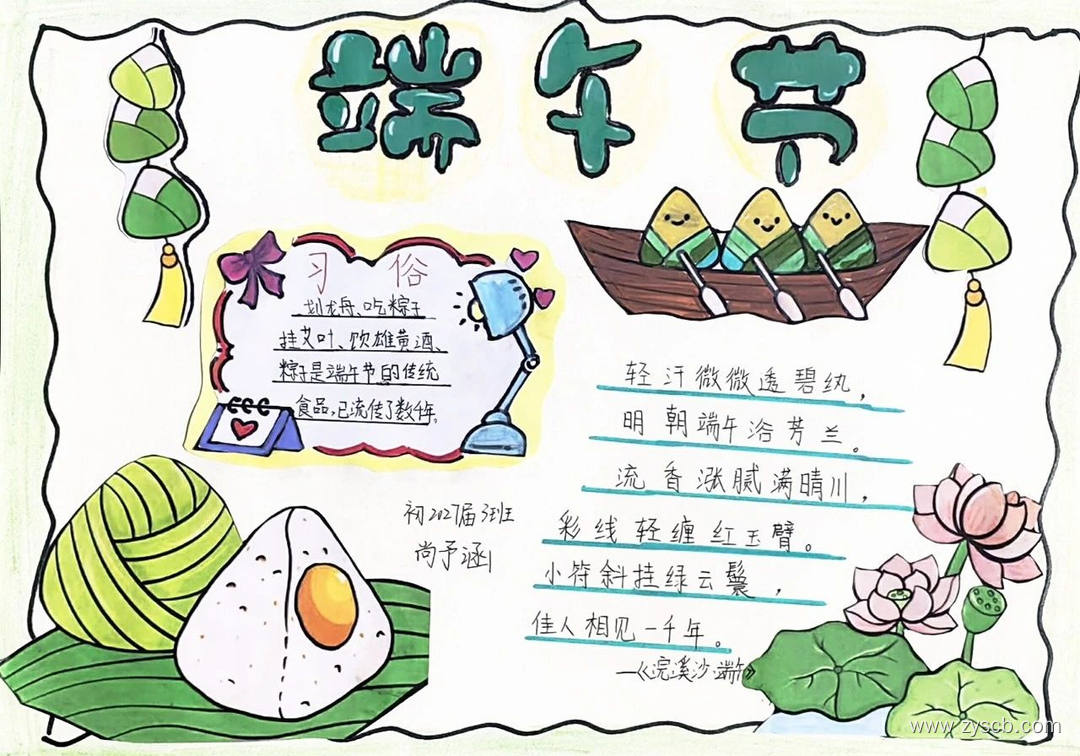 端午节
习俗
划龙舟、吃粽子
挂艾叶、饮雄黄酒、
粽子是端午节的传统
食品,已流传了数千年。
轻汗微微透碧纨,
明朝端午浴芳兰。
流香涨腻满晴川,
彩线轻缠红玉臂。
小符斜挂绿云鬟,
佳人相见一千年。
—《浣溪沙·端午》
初2027届3班
尚予涵
www.zyscb.com